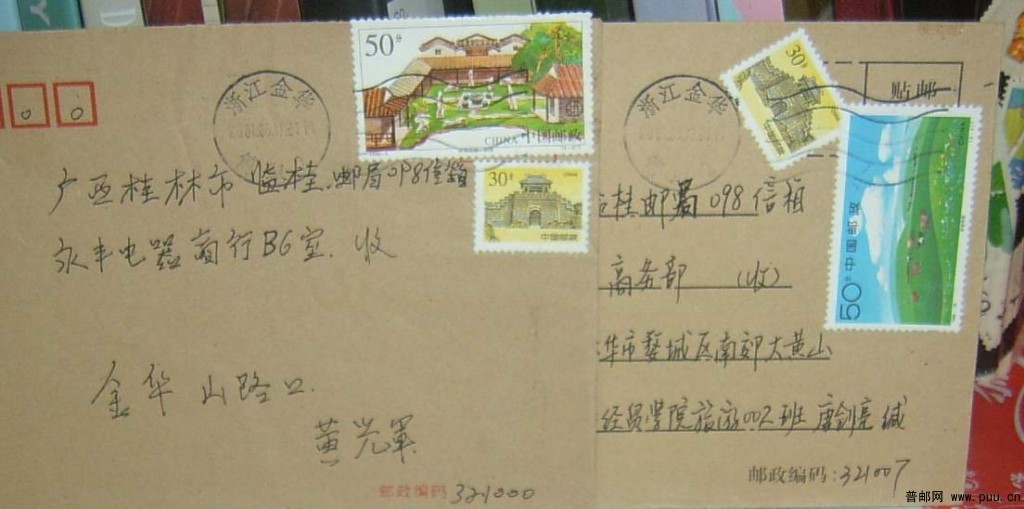 50分
CHINA 中国邮政
浙江金华
广西桂林市临桂邮局098信箱
30分
中国邮政
永丰电器商行B6室.收
金华山路口.
黄光军
邮政编码 321000
30
贴邮
浙江金华
桂邮局098信箱
50分 中国邮政
商务部 (收)
华市婺城区南郊大黄山
经贸学院旅游002班 唐剑亮 缄
邮政编码:321007
普邮网 www.puu.cn